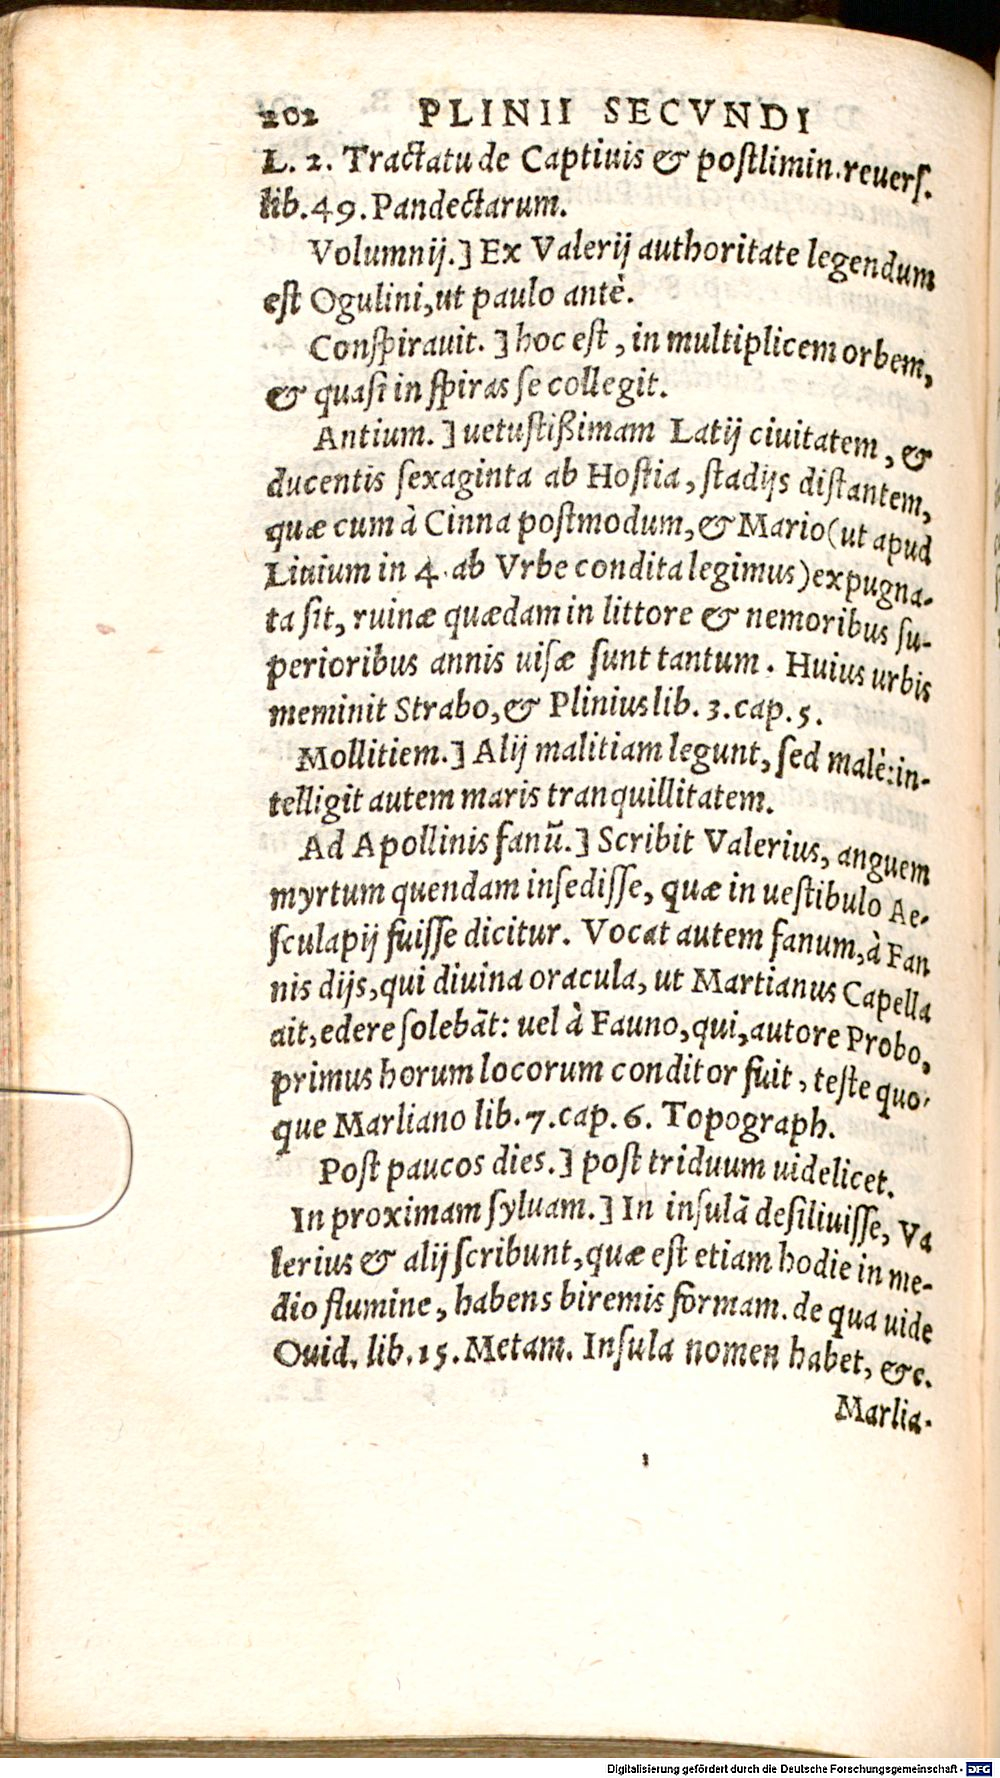 202 PLINII SECVNDI
L. 2. Tractatu de Captiuis & postlimin. reuers.
lib. 49. Pandectarum.
Volumnij. ] Ex Valerij authoritate legendum
est Ogulini, ut paulo antè.
Conspirauit. ] hoc est, in multiplicem orbem,
& quasi in spiras se collegit.
Antium. ] uetustißimam Latij ciuitatem, &
ducentis sexaginta ab Hostia, stadijs distantem,
quæ cum à Cinna postmodum, & Mario (ut apud
Liuium in 4. ab Vrbe condita legimus) expugna-
ta sit, ruinæ quædam in littore & nemoribus su-
perioribus annis uisæ sunt tantum. Huius urbis
meminit Strabo, & Plinius lib. 3. cap. 5.
Mollitiem. ] Alij malitiam legunt, sed malè: in-
telligit autem maris tranquillitatem.
Ad Apollinis fanũ. ] Scribit Valerius, anguem
myrtum quendam insedisse, quæ in uestibulo Ae-
sculapij fuisse dicitur. Vocat autem fanum, à Fan
nis dijs, qui diuina oracula, ut Martianus Capella
ait, edere solebãt: uel à Fauno, qui, autore Probo,
primus horum locorum conditor fuit, teste quo-
que Marliano lib. 7. cap. 6. Topograph.
Post paucos dies. ] post triduum uidelicet.
In proximam syluam. ] In insulã desiliuisse, Va
lerius & alij scribunt, quæ est etiam hodie in me-
dio flumine, habens biremis formam. de qua uide
Ouid. lib. 15. Metam. Insula nomen habet, &c.
Marlia-
Digitalisierung gefördert durch die Deutsche Forschungsgemeinschaft - DFG